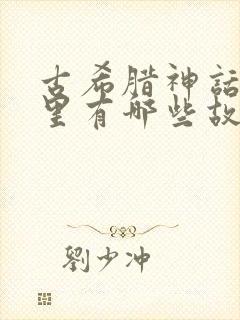 古希腊神話
里有哪些故
劉少冲